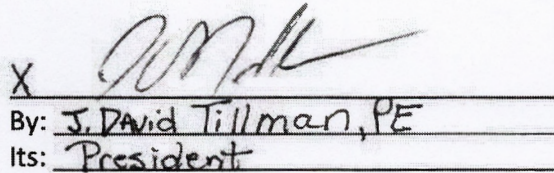 X
By: J. David Tillman, PE
Its: President